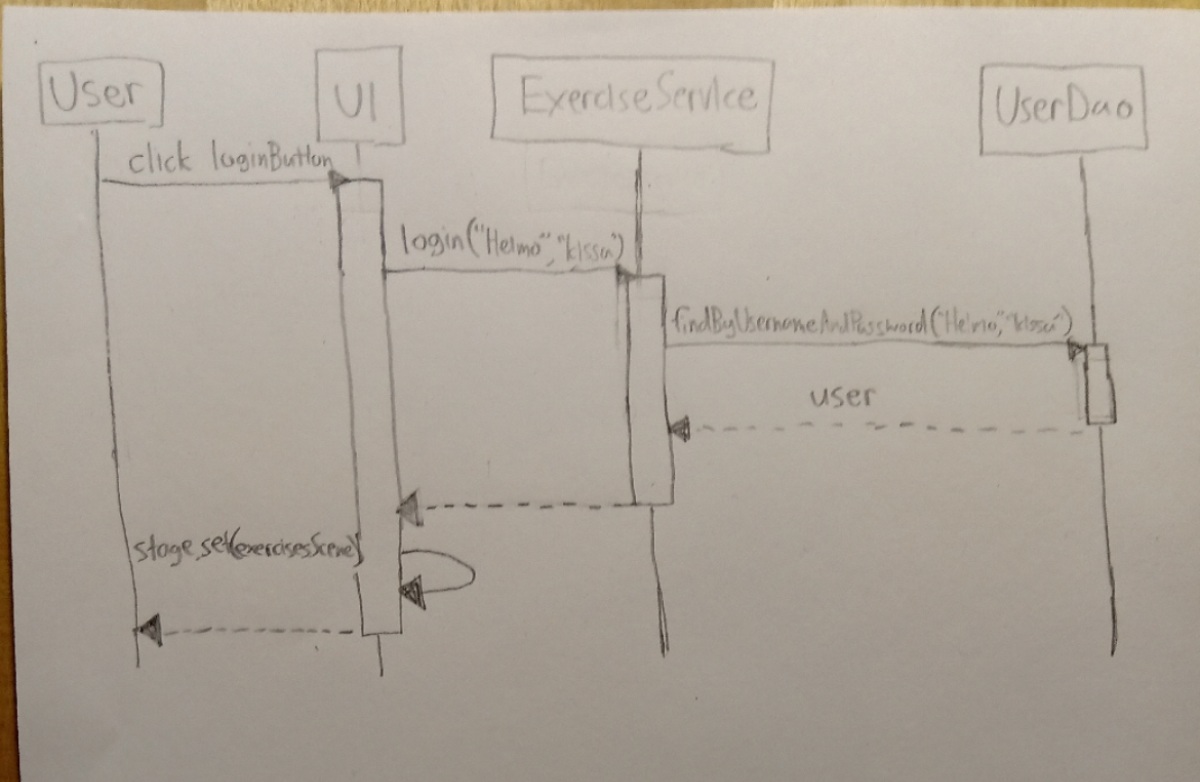 User
UI
ExerciseService
UserDao
click loginButton
login("Heimo","kissa")
findByUsernameAndPassword("Heimo","kissa")
user
stage.set(exercisesScene)